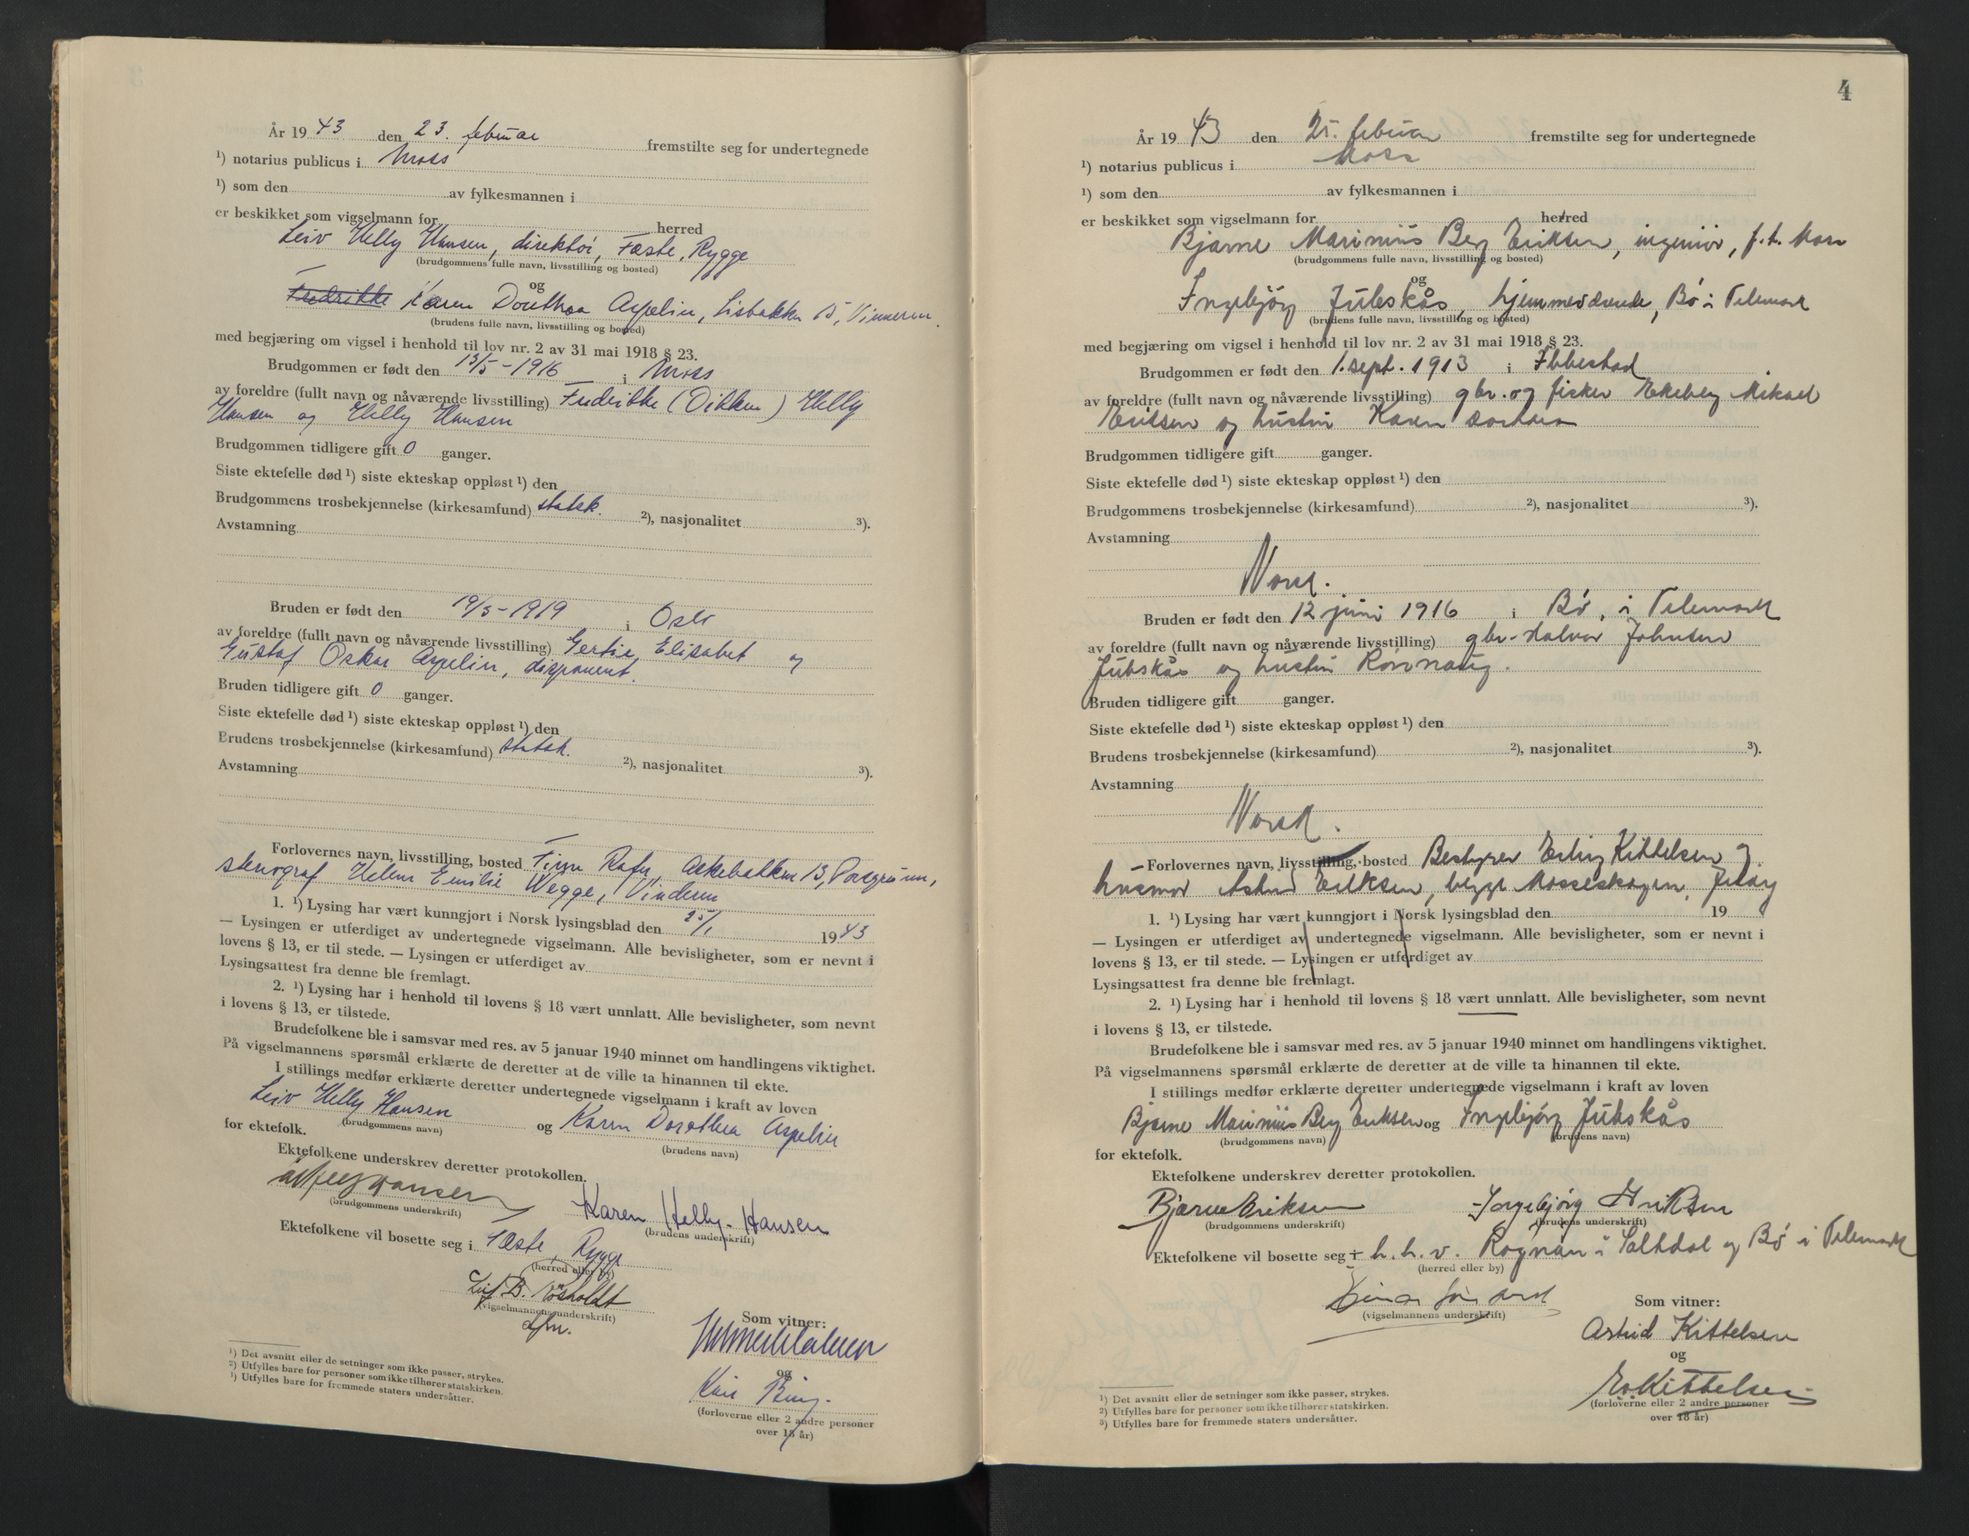 År 1943 den 23. februar fremstilte seg for undertegnede
¹) notarius publicus i Moss
¹) som den av fylkesmannen i
er beskikket som vigselmann for herred
Leiv Helly Hansen, direktør, Fæste, Rygge
(brudgommens fulle navn, livsstilling og bosted)
og
Fredrikke Karen Dorothea Aspelin, Lisbakken 15, Vinneren.
(brudens fulle navn, livsstilling og bosted)
med begjæring om vigsel i henhold til lov nr. 2 av 31 mai 1918 § 23.
Brudgommen er født den 13/5-1916 i Moss
av foreldre (fullt navn og nåværende livsstilling) Fredrikke (Dikken) Helly
Hansen og Helly Hansen
Brudgommen tidligere gift 0 ganger.
Siste ektefelle død ¹) siste ekteskap oppløst ¹) den
Brudgommens trosbekjennelse (kirkesamfund) statsk. ²), nasjonalitet ³).
Avstamning
Bruden er født den 19/5-1919 i Oslo
av foreldre (fullt navn og nåværende livsstilling) Gertie Elisabet og
Gustaf Oskar Aspelin, disponent.
Bruden tidligere gift 0 ganger.
Siste ektefelle død ¹) siste ekteskap oppløst ¹) den
Brudens trosbekjennelse (kirkesamfund) statsk. ²), nasjonalitet ³).
Avstamning
Forlovernes navn, livsstilling, bosted Finn Rafn, Askebakken 13, Porsgrunn,
stenograf Helene Emilie Wegge, Vinderen
1. ¹) Lysing har vært kunngjort i Norsk lysingsblad den 25/1 1943
— Lysingen er utferdiget av undertegnede vigselmann. Alle bevisligheter, som er nevnt i
lovens § 13, er til stede. — Lysingen er utferdiget av
Lysingsattest fra denne ble fremlagt.
2. ¹) Lysing har i henhold til lovens § 18 vært unnlatt. Alle bevisligheter, som nevnt
i lovens § 13, er tilstede.
Brudefolkene ble i samsvar med res. av 5 januar 1940 minnet om handlingens viktighet.
På vigselmannens spørsmål erklærte de deretter at de ville ta hinannen til ekte.
I stillings medfør erklærte deretter undertegnede vigselmann i kraft av loven
Leiv Helly Hansen og Karen Dorothea Aspelin
(brudgommens navn) (brudens navn)
for ektefolk.
Ektefolkene underskrev deretter protokollen.
Karen Helly-Hansen
(brudgommens underskrift) (brudens underskrift)
Ektefolkene vil bosette seg i Fæste, Rygge
(herred eller by)
Leif B.
(vigselmannens underskrift)
Som vitner:
og
Kari Bing.
(forloverne eller 2 andre personer
over 18 år)
¹) Det avsnitt eller de setninger som ikke passer, strykes.
²) Utfylles bare for personer som ikke tilhører statskirken.
³) Utfylles bare for fremmede staters undersåtter.
4
År 1943 den 25. februar fremstilte seg for undertegnede
¹) notarius publicus i Moss
¹) som den av fylkesmannen i
er beskikket som vigselmann for herred
Bjarne Marinius Berg Eriksen, ingeniør, f.t. Moss
(brudgommens fulle navn, livsstilling og bosted)
og
Ingebjørg Jubskås, hjemmeværende, Bø i Telemark
(brudens fulle navn, livsstilling og bosted)
med begjæring om vigsel i henhold til lov nr. 2 av 31 mai 1918 § 23.
Brudgommen er født den 1. sept. 1913 i Ibbestad
av foreldre (fullt navn og nåværende livsstilling) gbr. og fisker Ekeberg Mikael
Eriksen og hustru Karen
Brudgommen tidligere gift ganger.
Siste ektefelle død ¹) siste ekteskap oppløst ¹) den
Brudgommens trosbekjennelse (kirkesamfund) ²), nasjonalitet ³).
Avstamning
Norsk.
Bruden er født den 12 juni 1916 i Bø, i Telemark
av foreldre (fullt navn og nåværende livsstilling) gbr. Halvor Johnsen
Jubskås og hustru Rønnaug.
Bruden tidligere gift ganger.
Siste ektefelle død ¹) siste ekteskap oppløst ¹) den
Brudens trosbekjennelse (kirkesamfund) ²), nasjonalitet ³).
Avstamning
Norsk.
Forlovernes navn, livsstilling, bosted Bestyrer Erling Kittelsen og
husmor Astrid Eriksen, begge Mosseskogen, Jeløy
1. ¹) Lysing har vært kunngjort i Norsk lysingsblad den 19
— Lysingen er utferdiget av undertegnede vigselmann. Alle bevisligheter, som er nevnt i
lovens § 13, er til stede. — Lysingen er utferdiget av
Lysingsattest fra denne ble fremlagt.
2. ¹) Lysing har i henhold til lovens § 18 vært unnlatt. Alle bevisligheter, som nevnt
i lovens § 13, er tilstede.
Brudefolkene ble i samsvar med res. av 5 januar 1940 minnet om handlingens viktighet.
På vigselmannens spørsmål erklærte de deretter at de ville ta hinannen til ekte.
I stillings medfør erklærte deretter undertegnede vigselmann i kraft av loven
Bjarne Marinius Berg Eriksen og Ingebjørg Jubskås
(brudgommens navn) (brudens navn)
for ektefolk.
Ektefolkene underskrev deretter protokollen.
Bjarne Eriksen Ingebjørg Eriksen
(brudgommens underskrift) (brudens underskrift)
Ektefolkene vil bosette seg i h.h.v. Rognan i Saltdal og Bø i Telemark
(herred eller by)
(vigselmannens underskrift)
Som vitner:
Astrid Kittelsen
og
E. Kittelsen
(forloverne eller 2 andre personer
over 18 år)
¹) Det avsnitt eller de setninger som ikke passer, strykes.
²) Utfylles bare for personer som ikke tilhører statskirken.
³) Utfylles bare for fremmede staters undersåtter.